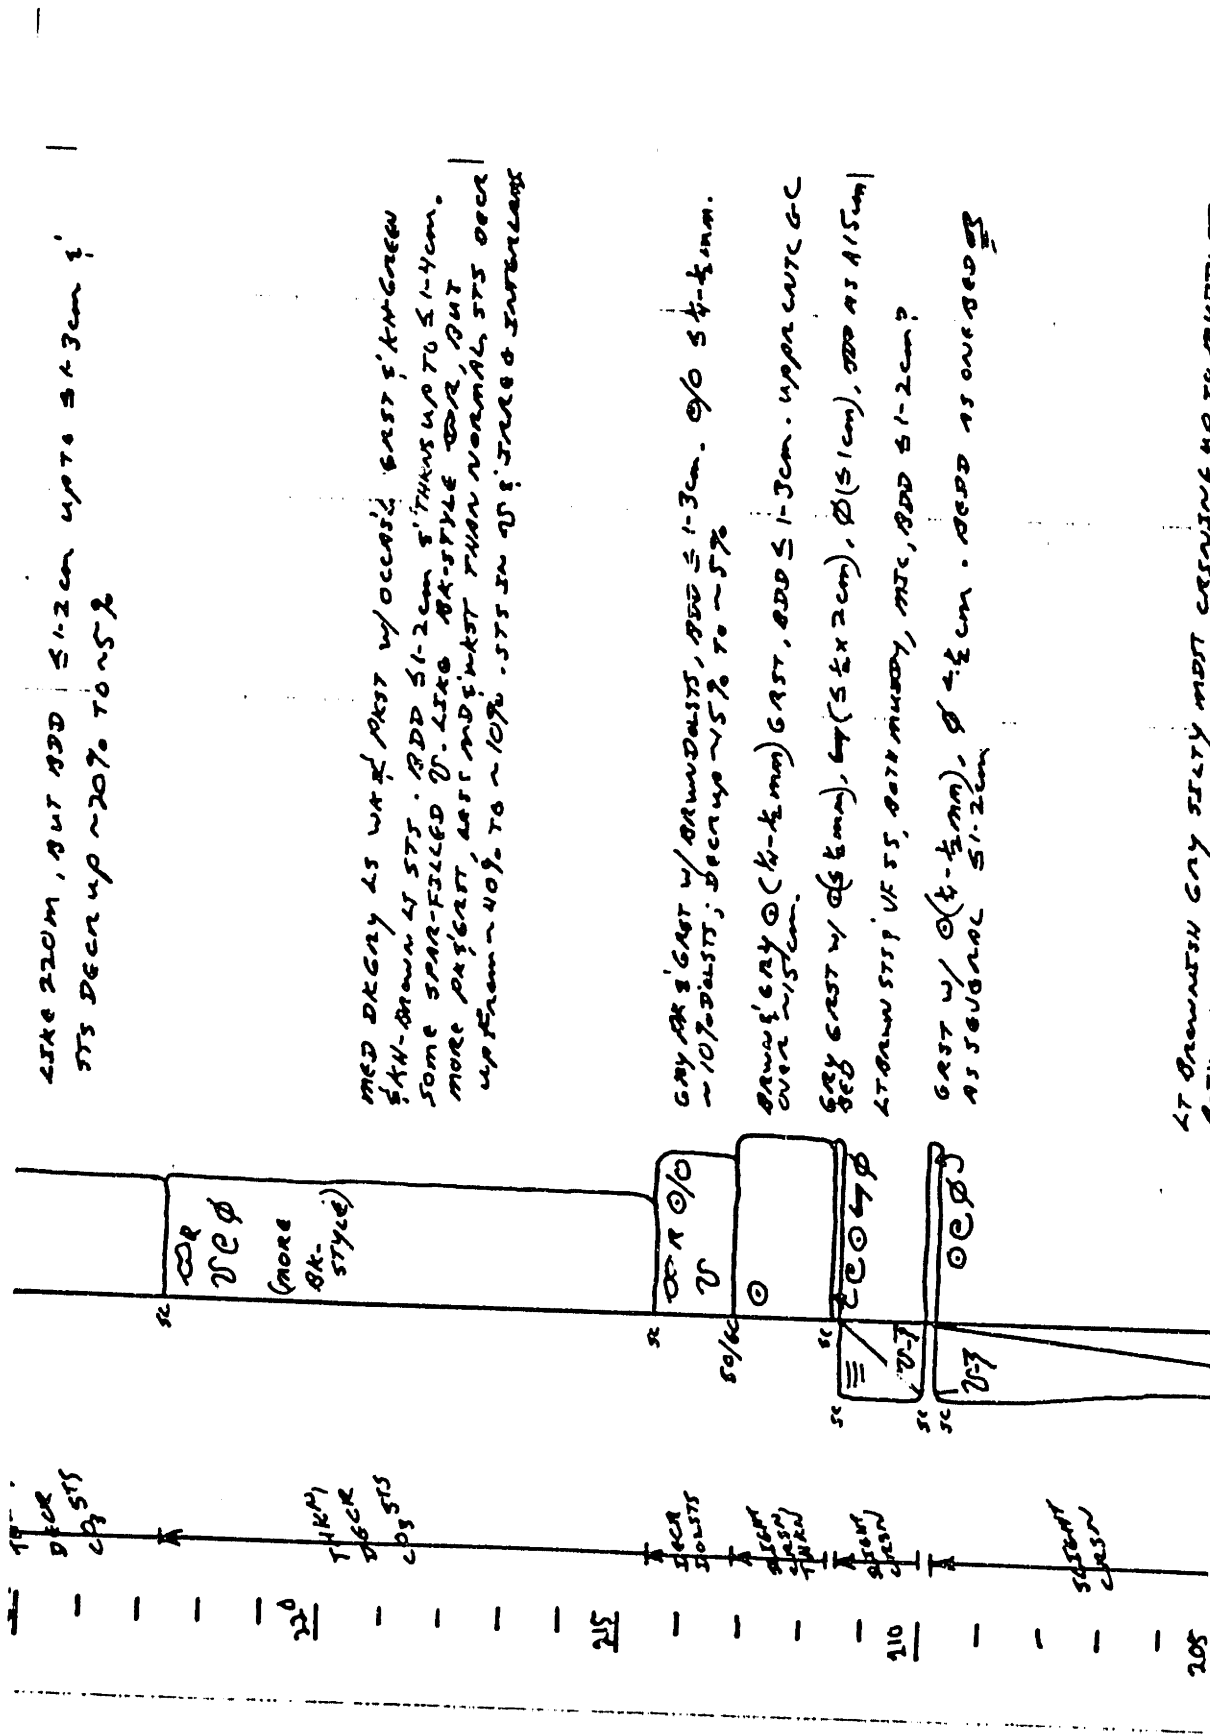 LIKE 220m, BUT BDD ≤ 1-2 cm UP TO ≤ 1-3cm &
STS DECR UP ~20% TO ~5%
MED DKGRY LS WK & PKST W/OCCAS'L GRST & KH-GREEN
& KH-BROWN LS STS. BDD ≤ 1-2cm & THKNS UP TO ≤ 1-4cm.
SOME SPAR-FILLED V. LIKE BK-STYLE R, BUT
MORE PK & GRST, LESS MD & WKST THAN NORMAL, STS DECR
UP FROM ~40% TO ~10%. STS IN & IRREG INTERLAMS
GRY PK & GRST W/ BRWN DOLSTS, BDD ≤ 1-3cm. ⊙/O ≤ ¼-½ mm.
~10% DOLSTS; DECR UP ~15% TO ~5%
BRWN & GRY ⊙ (¼-½ mm) GRST, BDD ≤ 1-3cm. UPPR CNTC GC
OVER ~15cm.
GRY GRST W/ ⊙(≤ ½ mm), (≤ ½ x 2cm), Ø(≤ 1cm), BDD AS A 15cm
BED
LT BRWN STS & VF SS, BOTH MUDDY, MIC, BDD ≤ 1-2cm?
GRST W/ ⊙(¼-½ mm), Ø < ½ cm. BEDD AS ONE BED OR
AS SEVERAL ≤ 1-2cm
LT BROWNISH GRY SILTY MDST CRSNING UP TO
SC
R
C Ø
(MORE
BK-
STYLE)
SC
R ⊙/O
SO/GC
⊙
SC
C C ⊙ Ø
SC
SC
SC
⊙ C Ø
DECR
CO3 STS
THKN,
DECR
CO3 STS
DECR
DOLSTS
SLIGHT
CRSN,
THKN
SLIGHT
CRSN
SLIGHT
CRSN
220
215
210
205